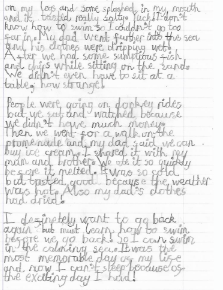 on my toes and some splashed in my mouth
and it tasted really salty. Yuck! I don't
know how to swim so I couldn't go too
far in. My dad went further into the sea
and his clothes were dripping wet!
After we had some sumptuous fish
and chips while sitting on the sands
We didn't even have to sit at a
table, how strange!
People were going on donkey rides
but we sat and watched because
we didn't have much money
Then we went for a walk on the
promenade and my dad said we can
buy ice cream. I shared it with my
mum and brother. We ate it so quickly
before it melted. It was so cold
but tasted good because the weather
was hot. Also my dad's clothes
had dried!
I definitely want to go back
again but must learn how to swim
before we go back so I can swim
in the calming sea. It was the
most memorable day of my life
and now I can't sleep because of
the exciting day I had!